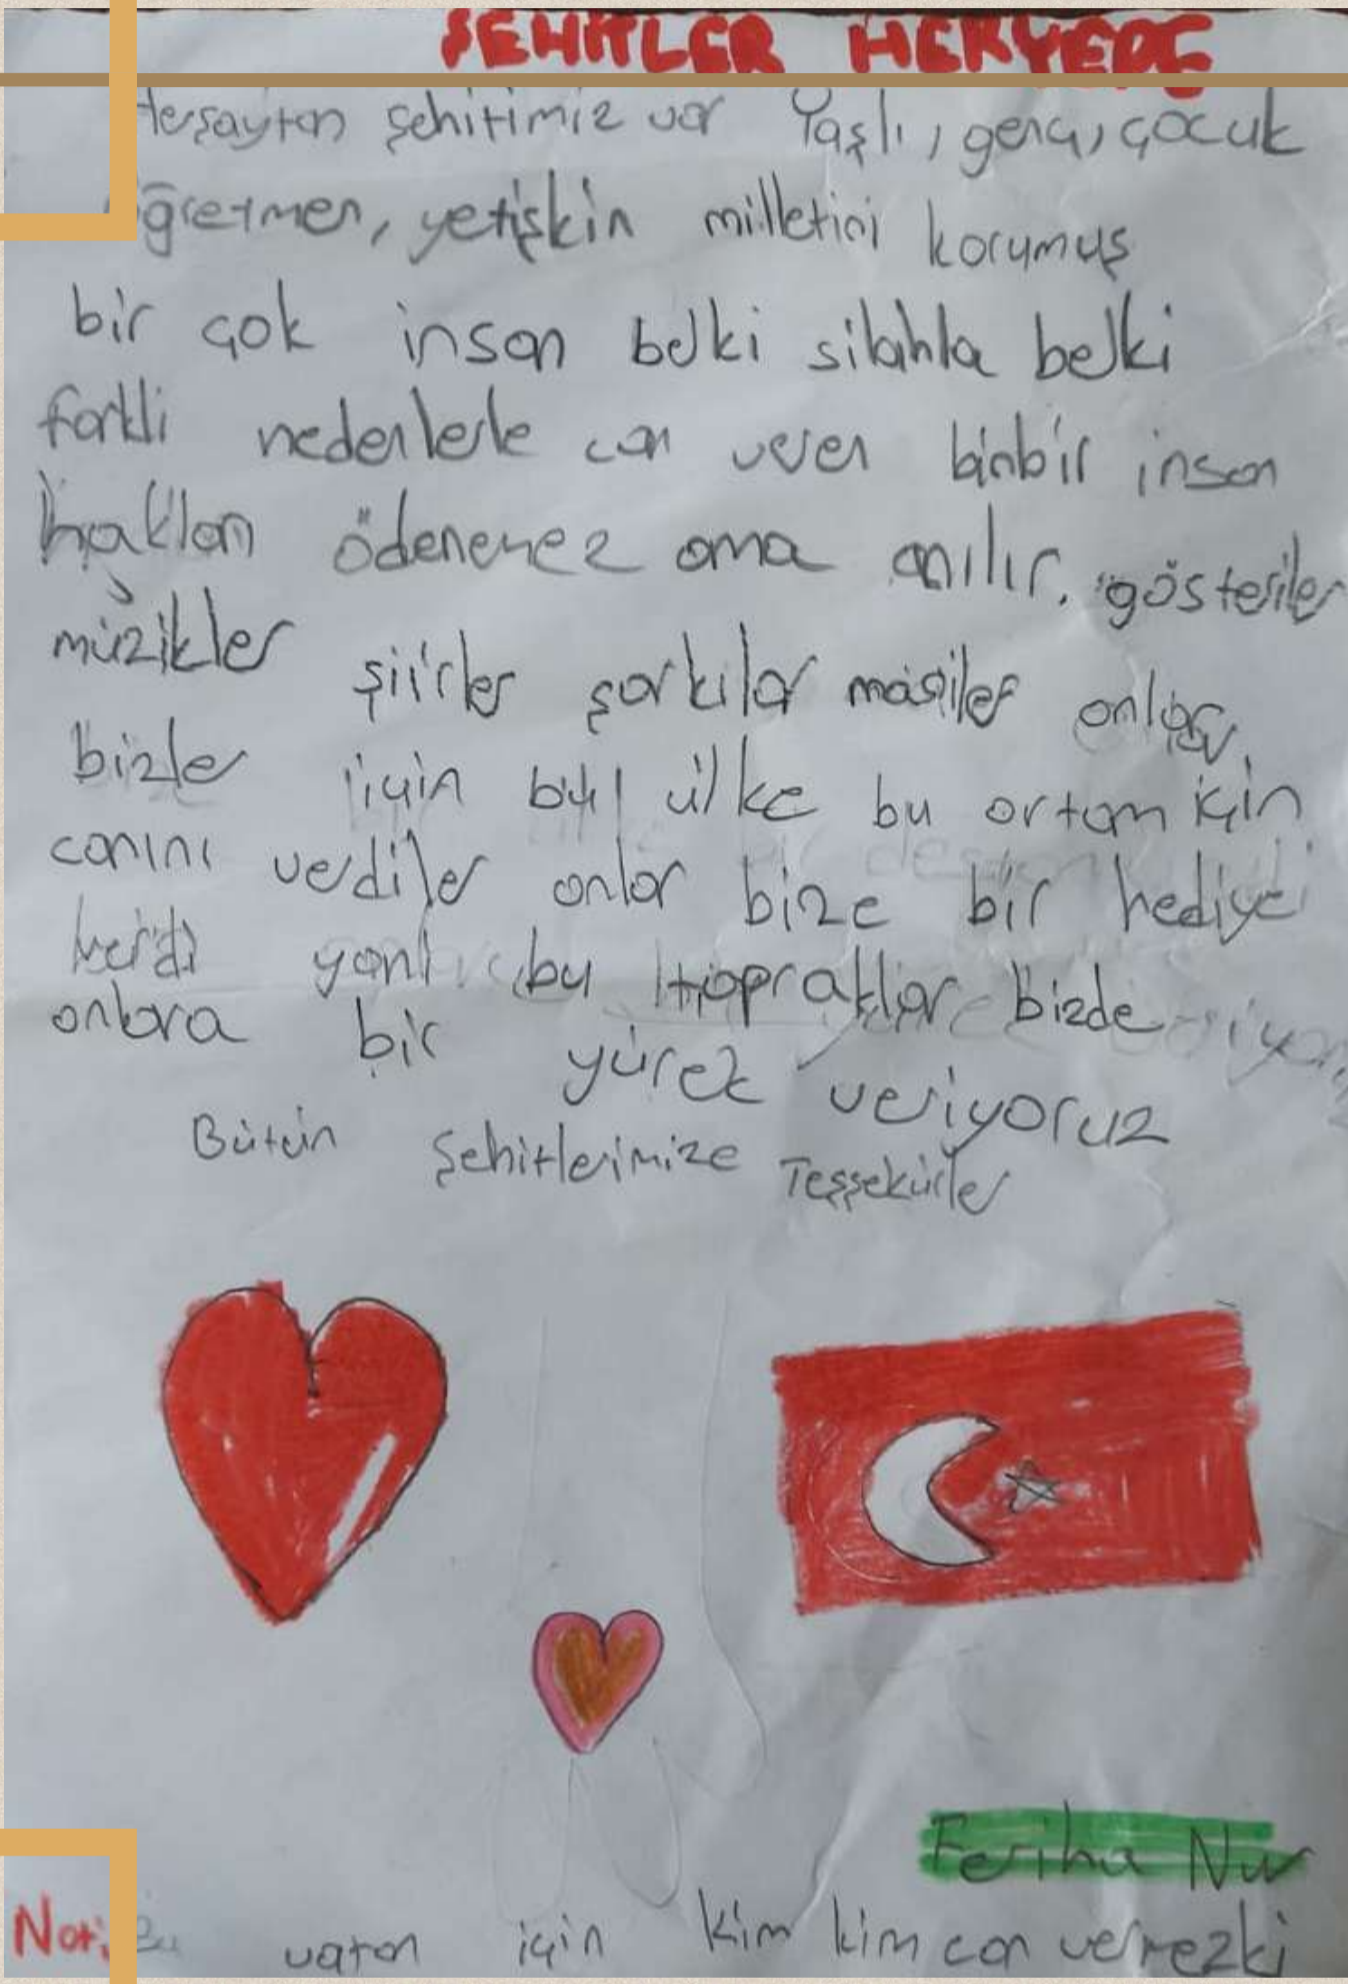 ŞEHİTLER HERYERDE
Herşaytan şehitimiz var Yaşlı, genç, çocuk
öğretmen, yetişkin milletini korumuş
bir çok insan belki silahla belki
farkli nedenlerle can veren binbir insan
hakları ödenemez ama anılır. gösteriler
müzikler şiirler şarkılar maniler onlar
bizler için bu ülke bu ortam için
canını verdiler onlar bize bir hediye
verdi yani bu topraklar bizde
onlara bir yürek veriyoruz
Bütün Şehitlerimize Teşşekürler
Feriha Nur
Not: Bu vatan için kim kim can vermezki